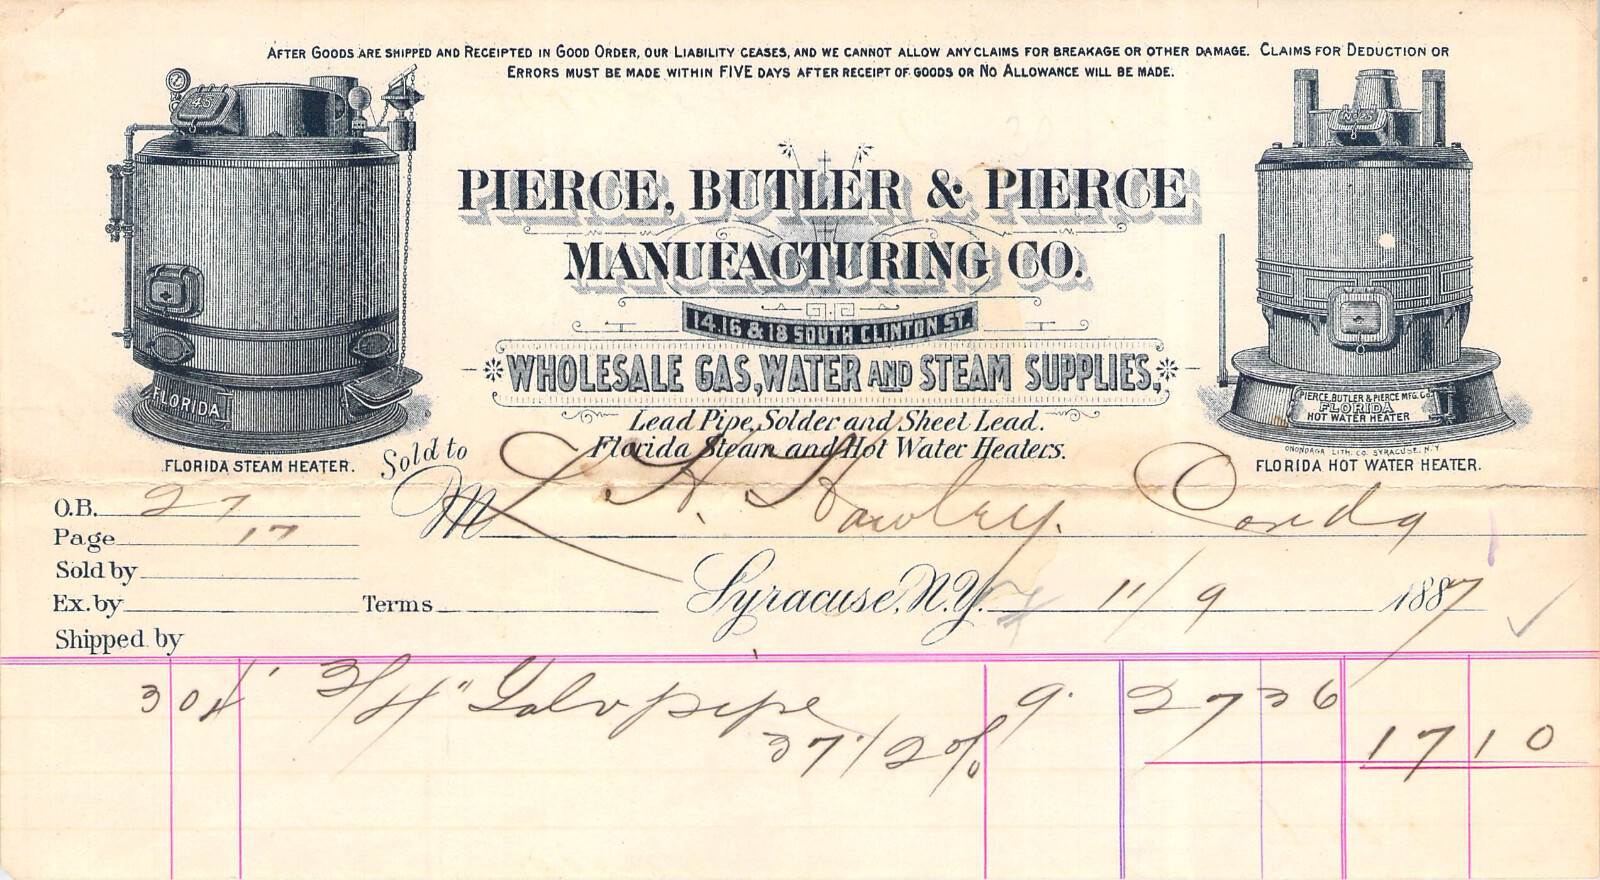 AFTER GOODS ARE SHIPPED AND RECEIPTED IN GOOD ORDER, OUR LIABILITY CEASES, AND WE CANNOT ALLOW ANY CLAIMS FOR BREAKAGE OR OTHER DAMAGE. CLAIMS FOR DEDUCTION OR
ERRORS MUST BE MADE WITHIN FIVE DAYS AFTER RECEIPT OF GOODS OR NO ALLOWANCE WILL BE MADE.
45
No 25
PIERCE, BUTLER & PIERCE
MANUFACTURING CO.
14, 16 & 18 SOUTH CLINTON ST.
WHOLESALE GAS, WATER AND STEAM SUPPLIES,
Lead Pipe, Solder and Sheet Lead.
Florida Steam and Hot Water Heaters.
FLORIDA
FLORIDA STEAM HEATER.
PIERCE, BUTLER & PIERCE MFG. Co.
FLORIDA
HOT WATER HEATER
ONONDAGA LITH. CO. SYRACUSE. N.Y.
FLORIDA HOT WATER HEATER.
Sold to
M L. H. Hawley.
O.B. 27
Page 17
Sold by
Ex. by Terms
Syracuse, N.Y. 11/9 1887
Shipped by
304' 3/4" Galv pipe 9. 27 36
37 1/2 % 17 10